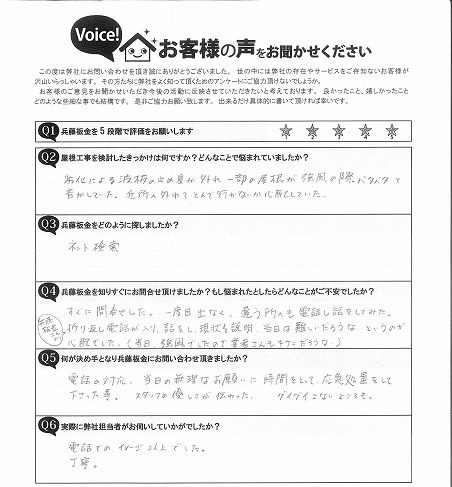 Voice!
お客様の声をお聞かせください
この度は弊社にお問い合わせを頂き誠にありがとうございました。世の中には弊社の存在やサービスをご存知ないお客様が
沢山いらっしゃいます。その方たちに弊社をよく知って頂くためのアンケートにご協力頂けないでしょうか。
お客様のご意見をお聞かせいただき今後の活動に反映させていただきたいと考えております。良かったこと、嬉しかったこと
どのような些細な事でも結構です。是非ご協力お願い致します。出来るだけ具体的に書いて頂ければ幸いです。
Q1 兵藤板金を5段階で評価をお願いします
1 2 3 4 5
Q2 屋根工事を検討したきっかけは何ですか？どんなことで悩まれていましたか？
劣化による波板の止め具が外れ一部の屋根が強風の際バタバタと
音がしていた。近所へ外れてとんで行かないか心配していた。
Q3 兵藤板金をどのように探しましたか？
ネット検索
Q4 兵藤板金を知りすぐにお問合せ頂けましたか？もし悩まれたとしたらどんなことがご不安でしたか？
すぐに問合せした。一度目出なく、違う所へも電話し話をしてみた。
折り返し電話が入り、話をし、現状を説明、当日は難しいだろうな というのが
心配でした。(当日、強風でしたので業者さんもキケンだろうな)
Q5 何が決め手となり兵藤板金にお問い合わせ頂きましたか？
電話の対応、当日の無理なお願いに時間をさいて、応急処置をして
下さった事。スタッフの優しさが伝わった。グイグイこないところも。
Q6 実際に弊社担当者がお伺いしていかがでしたか？
電話でのイメージ以上でした。
丁寧。